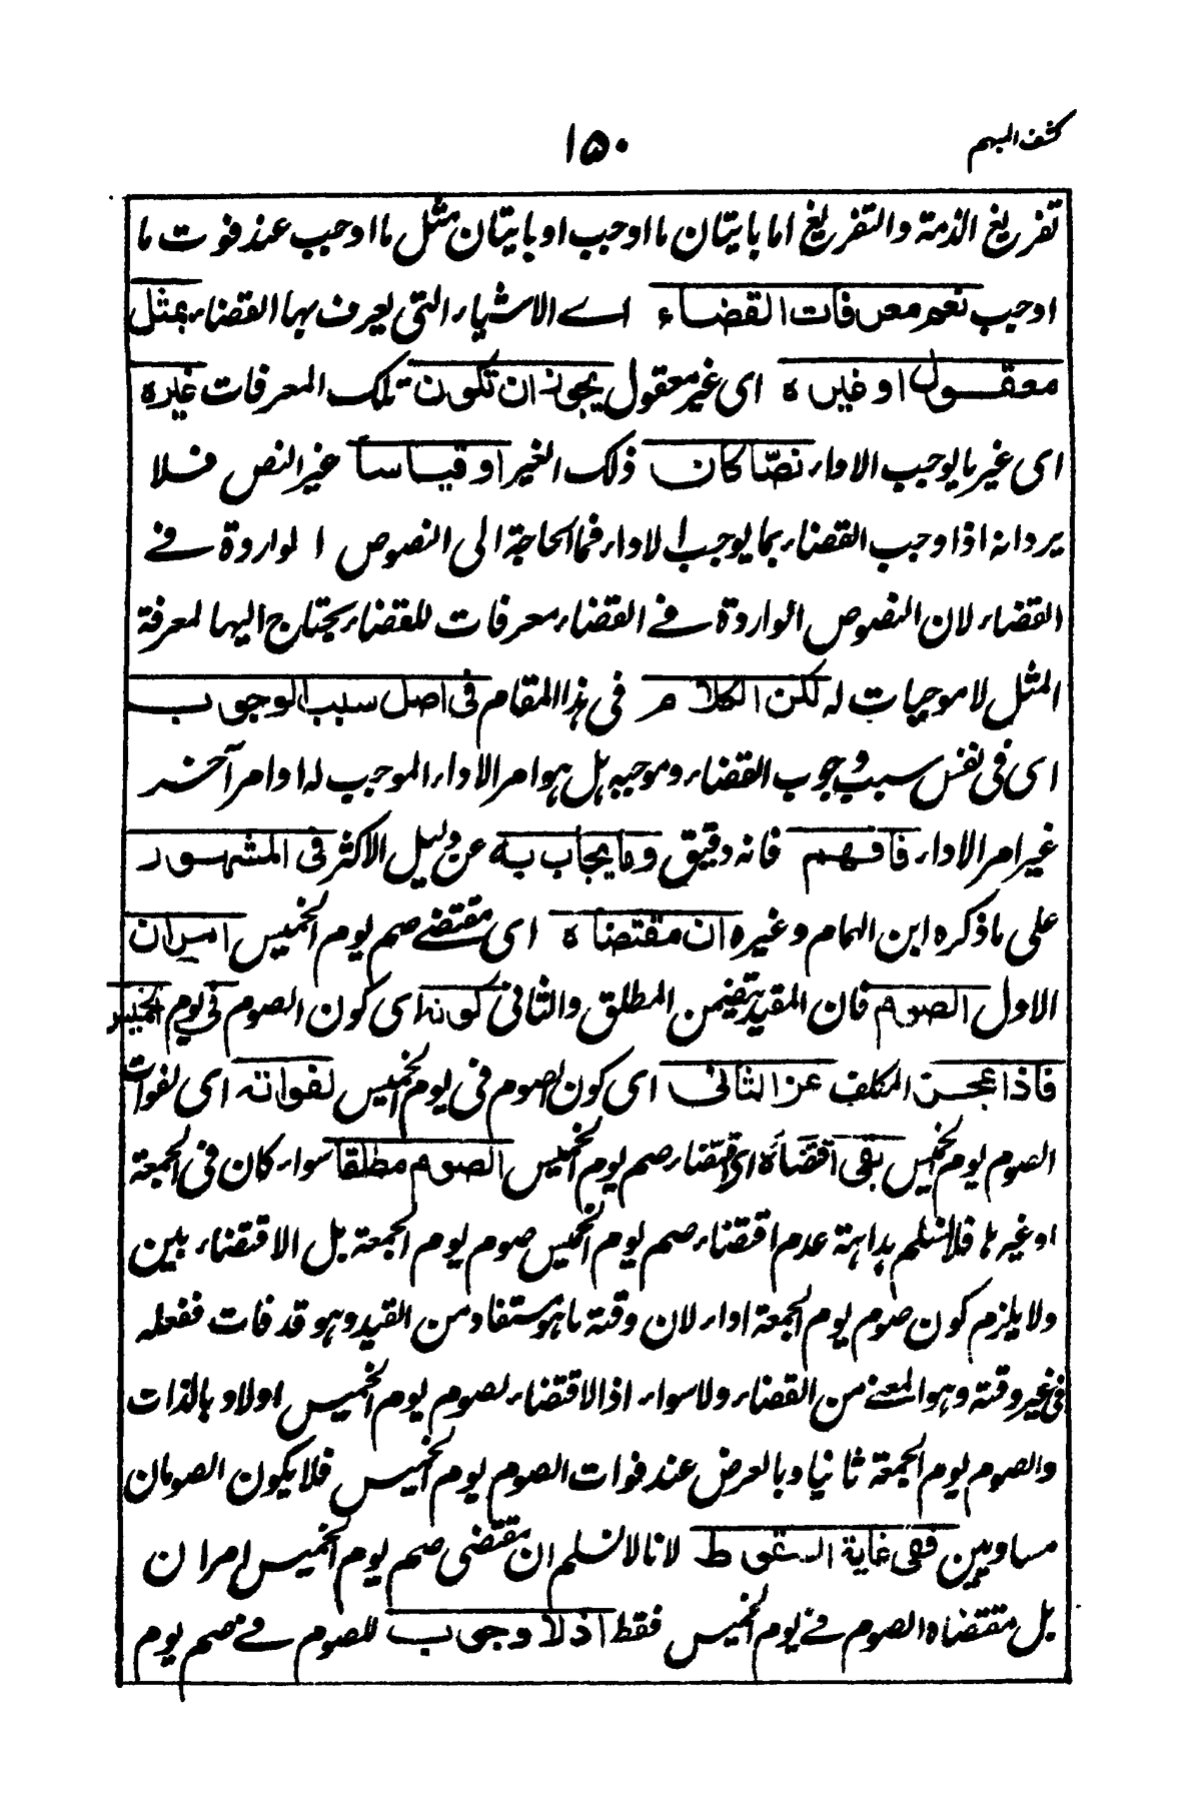 كشف المبهم
۱۵۰
تفريغ الذمة والتفريغ اما باتيان ما اوجب او باتيان مثل ما اوجب عند فوت ما
اوجب نعم معرفات القضاء اے الاشياء التى يعرف بها القضاء بمثل
معقول او غيره اى غير معقول يجوز ان تكون تلك المعرفات غيره
اى غير ما يوجب الاداء نصّا كان ذلك الغير او قياسا غير النص فلا
يرد انه اذا وجب القضاء بما يوجب الاداء فما الحاجة الى النصوص الواردة فے
القضاء لان النصوص الواردة فے القضاء معرفات للقضاء يحتاج اليها لمعرفة
المثل لا موجبات له لكن الكلام فى هذا المقام فى اصل سبب الوجوب
اى فى نفس سبب وجوب القضاء وموجبه هل هو امر الاداء الموجب له او امر آخر
غير امر الاداء فافهم فانه دقيق وما يجاب به عن دليل الاكثر فى المشهور
على ما ذكره ابن الهمام وغيره ان مقتضاه اى مقتضے صم يوم الخميس امران
الاول الصوم فان المقيد يتضمن المطلق والثانى كونه اى كون الصوم فى يوم الخميس
فاذا عجز المكلف عن الثانى اى كون الصوم فى يوم الخميس لفواته اى لفوات
الصوم يوم الخميس بقى اقتضاؤه اى اقتضاء صم يوم الخميس الصوم مطلقا سواء كان فى الجمعة
او غيرها فلا نسلم بداهة عدم اقتضاء صم يوم الخميس صوم يوم الجمعة بل الاقتضاء بين
ولا يلزم كون صوم يوم الجمعة اداء لان وقته ما هو مستفاد من القيد وهو قد فات ففعله
فى غير وقته وهو المعنے من القضاء ولا سواء اذ الاقتضاء لصوم يوم الخميس اولا وبالذات
والصوم يوم الجمعة ثانيا وبالعرض عند فوات الصوم يوم الخميس فلا يكون الصومان
مساويين ففى غاية السقوط لانا لا نسلم ان مقتضى صم يوم الخميس امران
بل مقتضاه الصوم فے يوم الخميس فقط اذ لا وجوب للصوم فے صم يوم